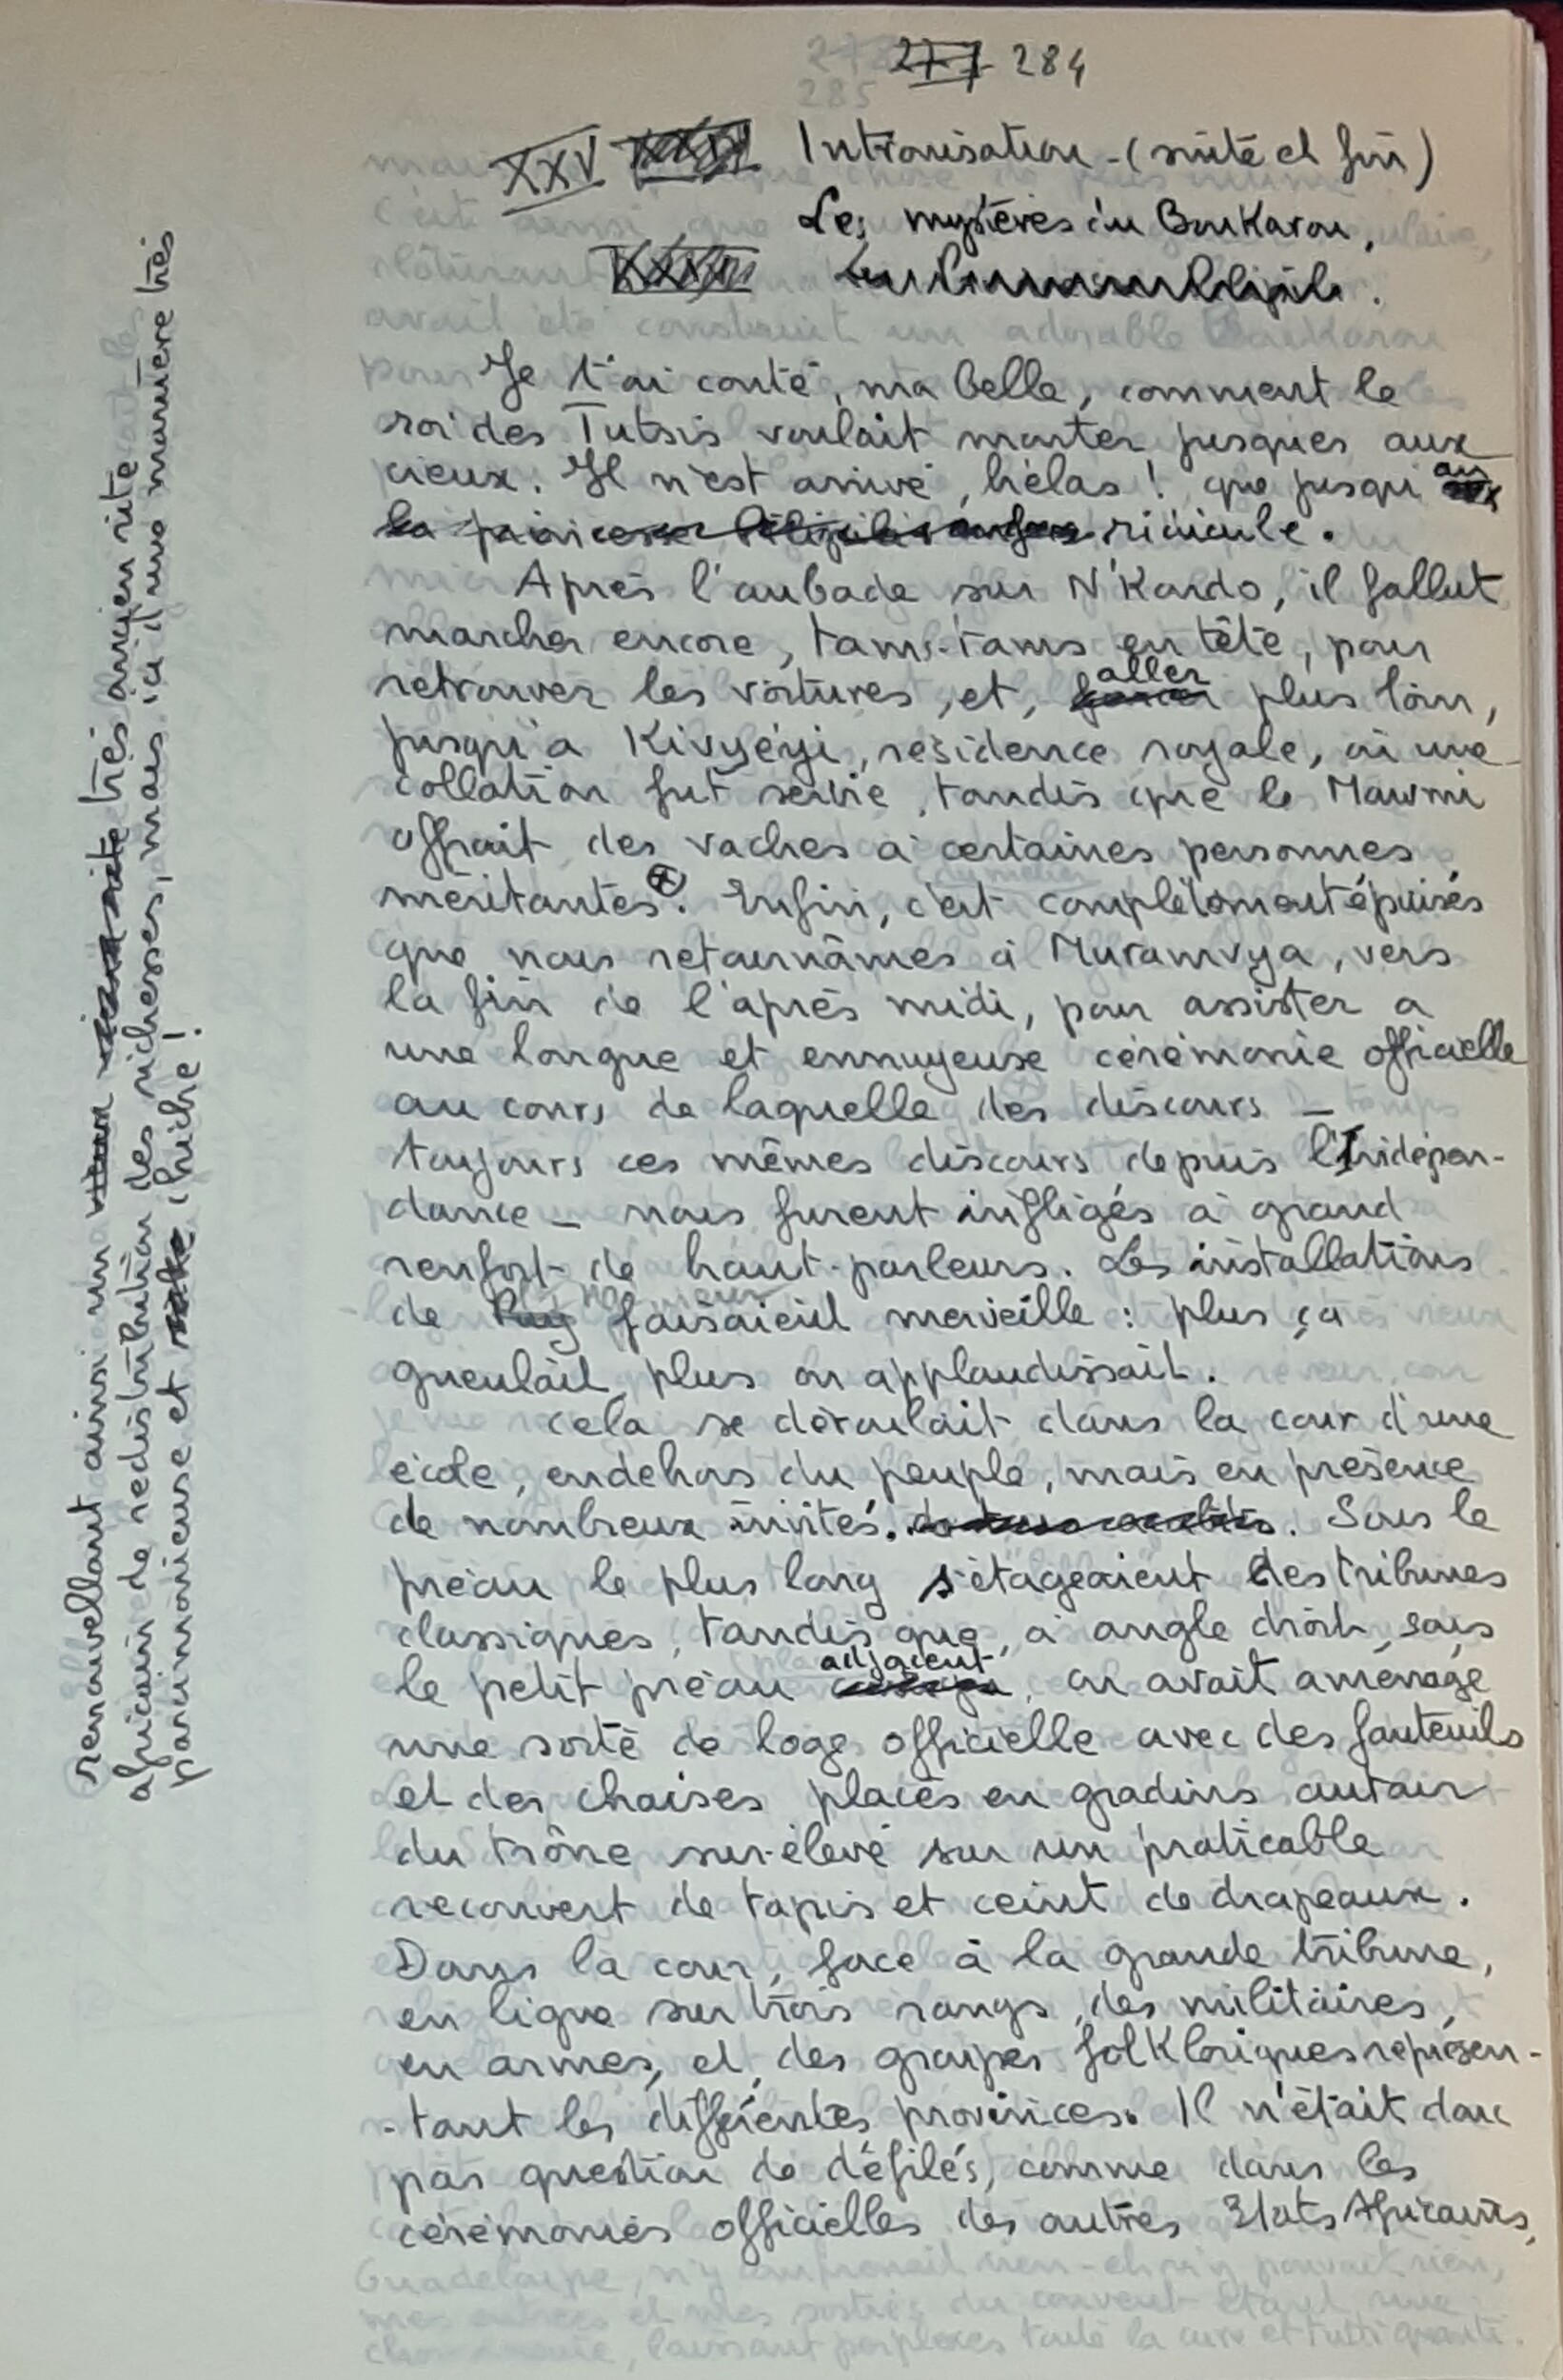 277 284
XXV XXVI Intronisation - (suite et fin)
Les mystères du Boukarou,
XXVI
Je t'ai conté, ma belle, comment le
roi des Tutsis voulait monter jusques aux
cieux. Il n'est arrivé, hélas ! que jusqu'au
ridicule.
Après l'aubade sur N'Kondo, il fallut
marcher encore, tams-tams en tête, pour
retrouver les voitures, et, aller plus loin,
jusqu'à Kivyéyi, résidence royale, où une
collation fut servie, tandis que le Mawmi
offrait des vaches à certaines personnes
méritantes⊗. Enfin, c'est complètement épuisés
que nous retournâmes à Muramvya, vers
la fin de l'après midi, pour assister a
une longue et ennuyeuse cérémonie officielle
au cours de laquelle des discours —
toujours ces mêmes discours depuis l'Indépen-
dance — nous furent infligés à grand
renfort de haut-parleurs. Les installations
de faisaient merveille : plus ça
gueulait, plus on applaudissait.
Cela se déroulait dans la cour d'une
école, endehors du peuple, mais en présence
de nombreux invités. Sous le
préau le plus long s'étageaient des tribunes
classiques, tandis que, à angle droit, sous
le petit préau adjacent, on avait aménagé
une sorte de loge officielle avec des fauteuils
et des chaises placés en gradins autour
du trône sur-élevé sur un praticable
recouvert de tapis et ceint de drapeaux.
Dans la cour, face à la grande tribune,
en ligne sur trois rangs, des militaires,
en armes, et, des groupes folkloriques représen-
-tant les différentes provinces. Il n'était donc
pas question de défilés, comme dans les
cérémonies officielles des autres Etats Africains,
renouvellant ainsi un vieux vieux rite très ancien rite
africain de redistribution des richesses, mais ici d'une manière très
parcimonieuse et chiche !